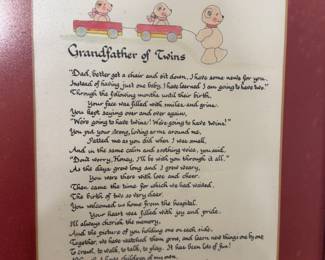 Grandfather of Twins
"Dad, better get a chair and sit down, I have some news for you.
Instead of having just one baby, I have learned I am going to have two."
Through the following months until their birth,
Your face was filled with smiles and grins.
You kept saying over and over again,
"We're going to have twins! We're going to have twins!"
You put your strong, loving arms around me,
Patted me as you did when I was small,
And in the same calm and soothing voice, you said,
"Don't worry, Honey, I'll be with you through it all."
As the days grew long and I grew weary,
You were there with love and cheer.
Then came the time for which we had waited,
The birth of two so very dear.
You welcomed us home from the hospital,
Your heart was filled with joy and pride.
I'll always cherish the memory,
And the picture of you holding one on each side.
Together, we have watched them grow, and learn new things one by one
To crawl, to walk, to talk, to play. It has been lots of fun!
children of my own,